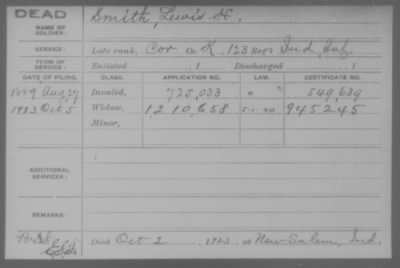 DEAD
NAME OF SOLDIER:
Smith, Lewis H.
SERVICE:
Late rank, Cor Co. K, 123 Reg't Ind. Inf.
TERM OF SERVICE:
Enlisted , 1 Discharged , 1
DATE OF FILING. CLASS. APPLICATION NO. LAW. CERTIFICATE NO.
1889 Aug 27 Invalid, 725,033 549,639
1923 Oct 5 Widow, 1210,658 5-1-20 945245
Minor,
ADDITIONAL SERVICES:
REMARKS:
Died Oct 2, 1923, at New-Salem, Ind.